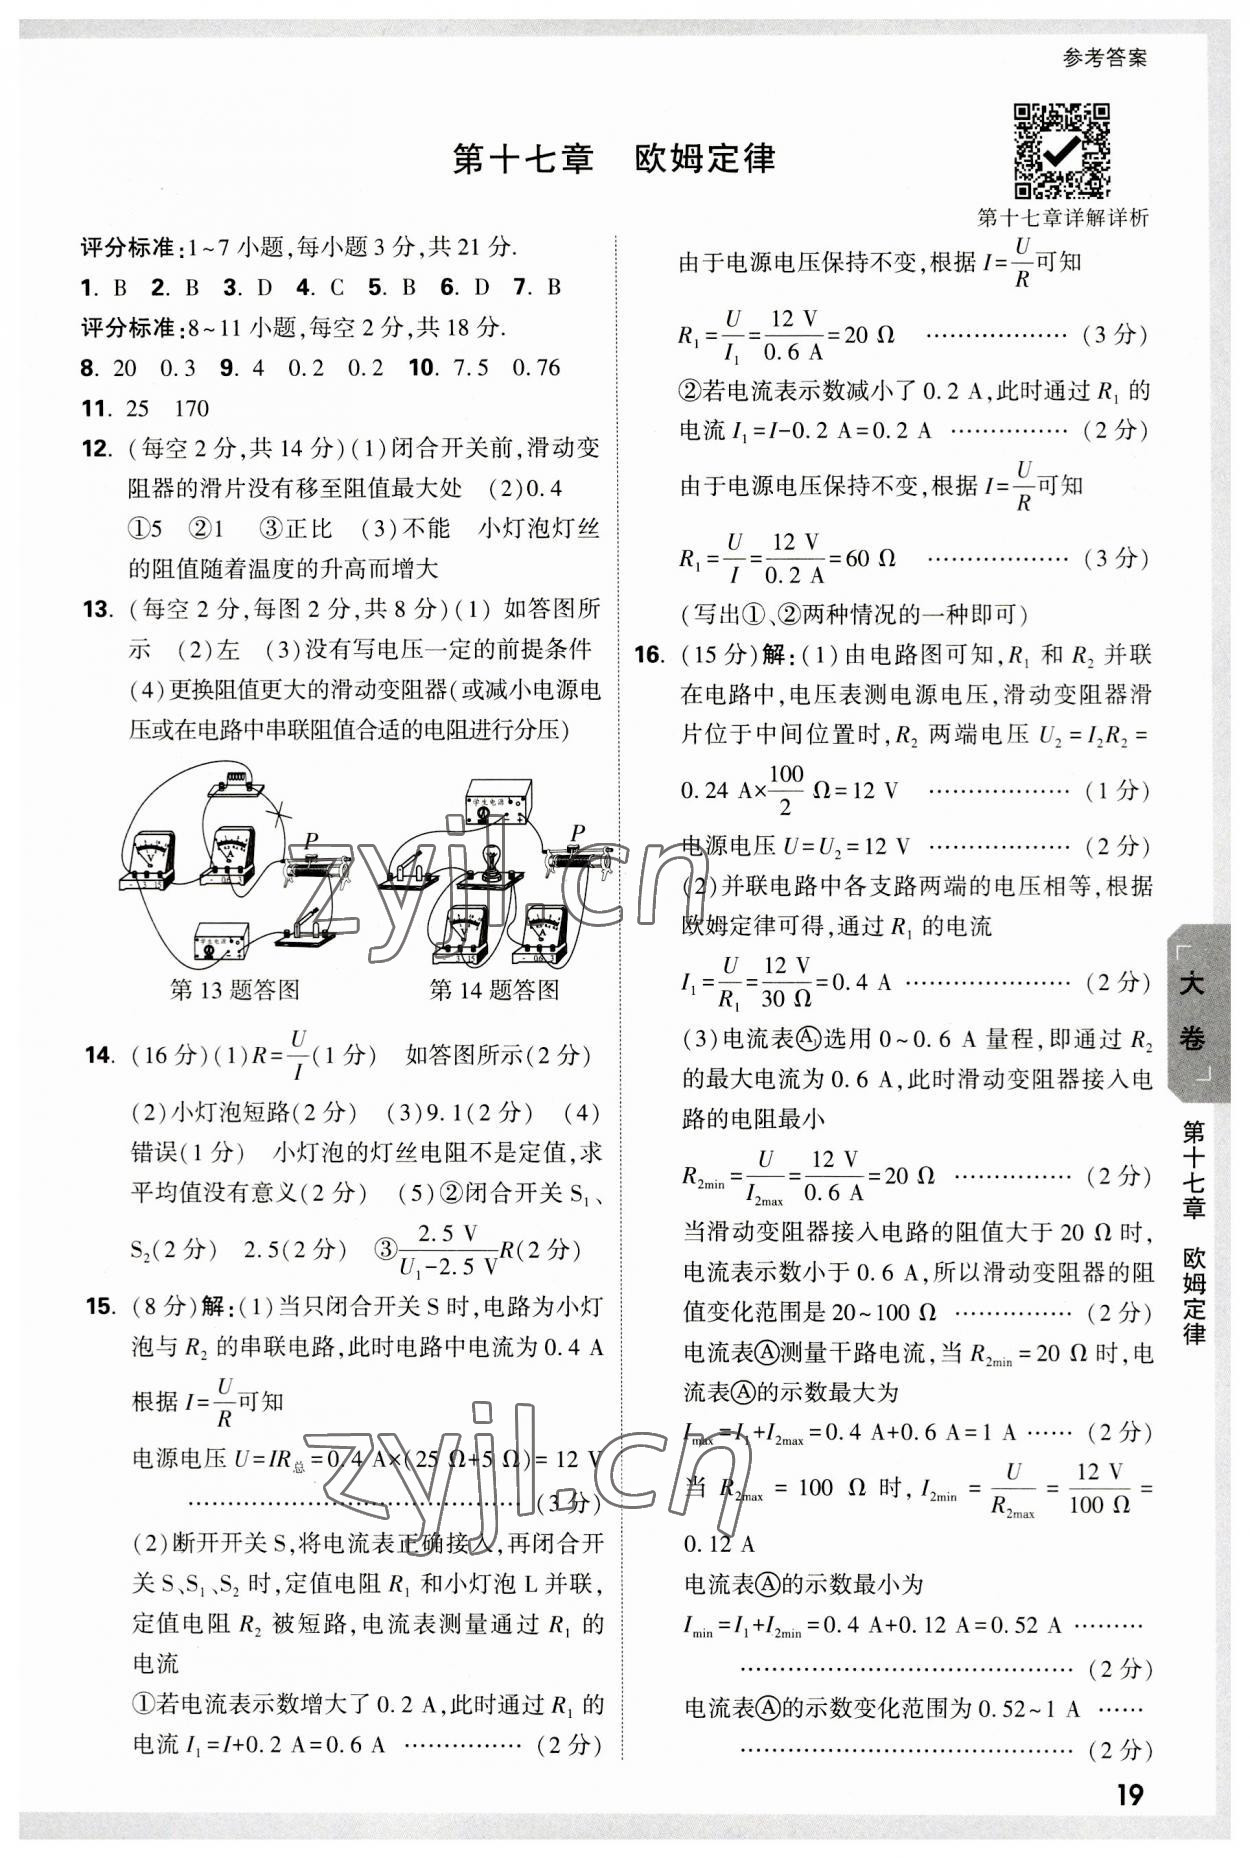 参考答案
第十七章 欧姆定律
第十七章详解详析
评分标准:1~7小题,每小题3分,共21分.
1. B 2. B 3. D 4. C 5. B 6. D 7. B
评分标准:8~11小题,每空2分,共18分.
8. 20 0.3 9. 4 0.2 0.2 10. 7.5 0.76
11. 25 170
12. (每空2分,共14分)(1)闭合开关前,滑动变
阻器的滑片没有移至阻值最大处 (2)0.4
①5 ②1 ③正比 (3)不能 小灯泡灯丝
的阻值随着温度的升高而增大
13. (每空2分,每图2分,共8分)(1) 如答图所
示 (2)左 (3)没有写电压一定的前提条件
(4)更换阻值更大的滑动变阻器(或减小电源电
压或在电路中串联阻值合适的电阻进行分压)
P
学生电源
P
V
A
- 3 15
- 0.6 3
学生电源
V
A
- 3 15
- 0.6 3
第13题答图 第14题答图
14. (16分)(1)R=U/I(1分) 如答图所示(2分)
(2)小灯泡短路(2分) (3)9.1(2分) (4)
错误(1分) 小灯泡的灯丝电阻不是定值,求
平均值没有意义(2分) (5)②闭合开关S₁、
S₂(2分) 2.5(2分) ③2.5 V/(U₁-2.5 V)R(2分)
15. (8分)解:(1)当只闭合开关S时,电路为小灯
泡与R₂的串联电路,此时电路中电流为0.4 A
根据I=U/R可知
电源电压U=IR总=0.4 A×(25 Ω+5 Ω)=12 V
……………………………………(3分)
(2)断开开关S,将电流表正确接入,再闭合开
关S、S₁、S₂时,定值电阻R₁和小灯泡L并联,
定值电阻R₂被短路,电流表测量通过R₁的
电流
①若电流表示数增大了0.2 A,此时通过R₁的
电流I₁=I+0.2 A=0.6 A ……………(2分)
由于电源电压保持不变,根据I=U/R可知
R₁=U/I₁=12 V/0.6 A=20 Ω ………………(3分)
②若电流表示数减小了0.2 A,此时通过R₁的
电流I₁=I-0.2 A=0.2 A ……………(2分)
由于电源电压保持不变,根据I=U/R可知
R₁=U/I=12 V/0.2 A=60 Ω ………………(3分)
(写出①、②两种情况的一种即可)
16. (15分)解:(1)由电路图可知,R₁和R₂并联
在电路中,电压表测电源电压,滑动变阻器滑
片位于中间位置时,R₂两端电压U₂=I₂R₂=
0.24 A×100/2 Ω=12 V ………………(1分)
电源电压U=U₂=12 V ………………(2分)
(2)并联电路中各支路两端的电压相等,根据
欧姆定律可得,通过R₁的电流
I₁=U/R₁=12 V/30 Ω=0.4 A …………………(2分)
(3)电流表Ⓐ₁选用0~0.6 A量程,即通过R₂
的最大电流为0.6 A,此时滑动变阻器接入电
路的电阻最小
R₂min=U/I₂max=12 V/0.6 A=20 Ω ……………(2分)
当滑动变阻器接入电路的阻值大于20 Ω时,
电流表示数小于0.6 A,所以滑动变阻器的阻
值变化范围是20~100 Ω ……………(2分)
电流表Ⓐ测量干路电流,当R₂min=20 Ω时,电
流表Ⓐ的示数最大为
Imax=I₁+I₂max=0.4 A+0.6 A=1 A ……(2分)
当R₂max=100 Ω时,I₂min=U/R₂max=12 V/100 Ω=
0.12 A
电流表Ⓐ的示数最小为
Imin=I₁+I₂min=0.4 A+0.12 A=0.52 A ………
……………………………………(2分)
电流表Ⓐ的示数变化范围为0.52~1 A ……
……………………………………(2分)
大卷
第十七章 欧姆定律
19
zyjl.cn
zyjl.cn